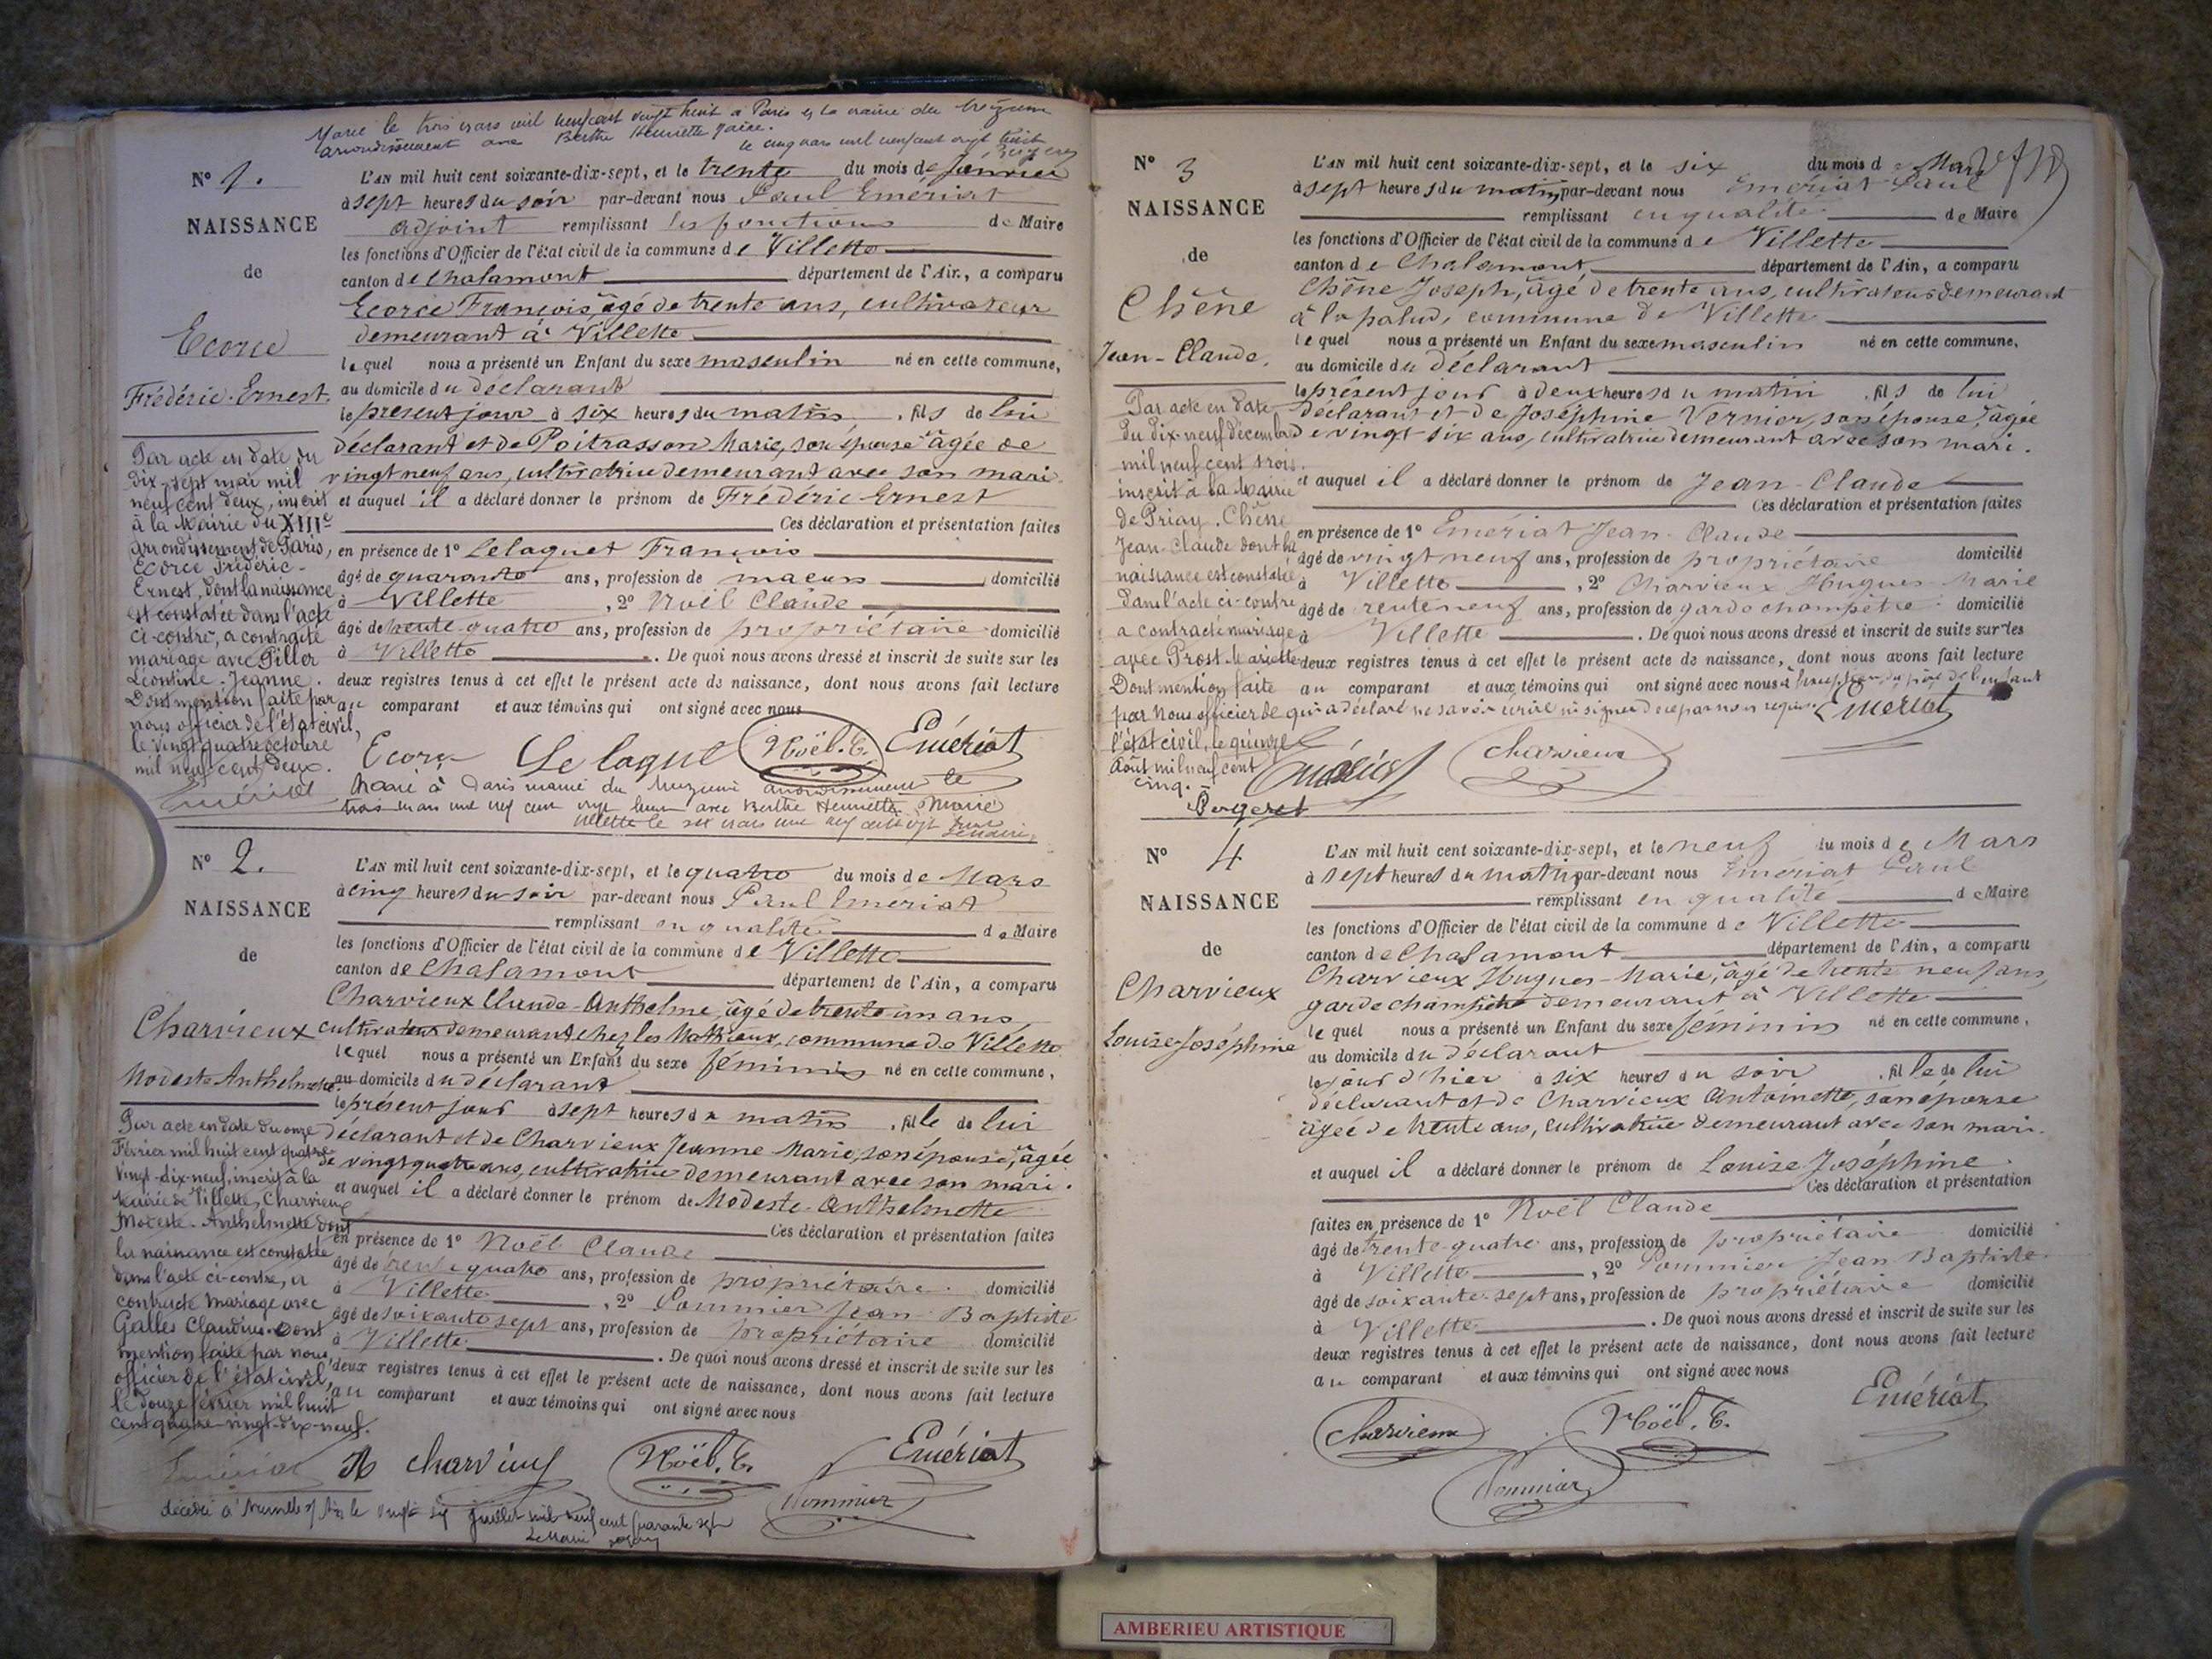 Marié le trois mars mil neuf cent vingt huit à Paris à la mairie du treizième
arrondissement avec Berthe Henriette
le cinq mars mil neuf cent vingt huit
N° 1.
NAISSANCE
de
Ecorce
Frédéric-Ernest.
Par acte en date du
dix-sept mai mil
neuf cent deux, inscrit
à la Mairie du XIIIe
arrondissement de Paris,
Ecorce Frédéric-
Ernest, dont la naissance
est constatée dans l'acte
ci-contre, a contracté
mariage avec Piller
Léontine-Jeanne.
Dont mention faite par
nous officier de l'état civil,
le vingt quatre octobre
mil neuf cent deux.
Emériat
L'AN mil huit cent soixante-dix-sept, et le trente du mois de Janvier
à sept heures du soir par-devant nous Paul Emériat
adjoint remplissant les fonctions de Maire
les fonctions d'Officier de l'état civil de la commune de Villette
canton de Chalamont département de l'Ain, a comparu
Ecorce François, âgé de trente ans, cultivateur
demeurant à Villette
lequel nous a présenté un Enfant du sexe masculin né en cette commune,
au domicile du déclarant
le présent jour à six heures du matin, fils de lui
déclarant et de Poitrasson Marie, son épouse âgée de
vingt neuf ans, cultivatrice demeurant avec son mari.
et auquel il a déclaré donner le prénom de Frédéric Ernest
Ces déclaration et présentation faites
en présence de 1° Lelaquet François
âgé de quarante ans, profession de maçon domicilié
à Villette, 2° Noël Claude
âgé de trente-quatre ans, profession de propriétaire domicilié
à Villette. De quoi nous avons dressé et inscrit de suite sur les
deux registres tenus à cet effet le présent acte de naissance, dont nous avons fait lecture
au comparant et aux témoins qui ont signé avec nous
Ecorce Le laquet Noël. C. Emériat
Marié à Paris mairie du treizième arrondissement le
trois mars mil neuf cent vingt huit avec Berthe Henriette
Villette le six mars mil neuf cent vingt huit
N° 2.
NAISSANCE
de
Charvieux
Modeste Anthelmette.
Par acte en date du onze
Février mil huit cent quatre
vingt-dix-neuf, inscrit à la
Mairie de Villette, Charvieux
Modeste-Anthelmette dont
la naissance est constatée
dans l'acte ci-contre, a
contracté mariage avec
Galles Claudius. Dont
mention faite par nous,
officier de l'état civil,
le douze février mil huit
cent quatre-vingt-dix-neuf.
Emériat
L'AN mil huit cent soixante-dix-sept, et le quatre du mois de Mars
à cinq heures du soir par-devant nous Paul Emériat
remplissant en qualité de Maire
les fonctions d'Officier de l'état civil de la commune de Villette
canton de Chalamont département de l'Ain, a comparu
Charvieux Claude-Anthelme, âgé de trente un ans,
cultivateur demeurant chez les Mathieux, commune de Villette
lequel nous a présenté un Enfant du sexe féminin né en cette commune,
au domicile du déclarant
le présent jour à sept heures du matin, fille de lui
déclarant et de Charvieux Jeanne Marie, son épouse, âgée
de vingt quatre ans, cultivatrice demeurant avec son mari.
et auquel il a déclaré donner le prénom de Modeste-Anthelmette
Ces déclaration et présentation faites
en présence de 1° Noël Claude
âgé de trente quatre ans, profession de propriétaire domicilié
à Villette, 2° Pommier Jean Baptiste
âgé de soixante sept ans, profession de propriétaire domicilié
à Villette. De quoi nous avons dressé et inscrit de suite sur les
deux registres tenus à cet effet le présent acte de naissance, dont nous avons fait lecture
au comparant et aux témoins qui ont signé avec nous
Charvieux Noël. C. Emériat
Pommier
le vingt six juillet mil neuf cent quarante sept
Le Maire
N° 3
NAISSANCE
de
Chêne
Jean-Claude.
Par acte en date
du dix-neuf décembre
mil neuf cent trois.
inscrit à la Mairie
de Priay, Chêne
Jean-Claude dont la
naissance est constatée
dans l'acte ci-contre
a contracté mariage
avec Prost Mariette
Dont mention faite
par Nous officier de
l'état civil, le quinze
Août mil neuf cent
cinq.
Pergeret
L'AN mil huit cent soixante-dix-sept, et le six du mois de Mars
à sept heures du matin par-devant nous Emériat Paul
remplissant en qualité de Maire
les fonctions d'Officier de l'état civil de la commune de Villette
canton de Chalamont, département de l'Ain, a comparu
Chêne Joseph, âgé de trente ans, cultivateur demeurant
à la palud, commune de Villette
lequel nous a présenté un Enfant du sexe masculin né en cette commune,
au domicile du déclarant
le présent jour à deux heures du matin, fils de lui
déclarant et de Joséphine Vernier, son épouse, âgée
de vingt six ans, cultivatrice demeurant avec son mari.
et auquel il a déclaré donner le prénom de Jean-Claude
Ces déclaration et présentation faites
en présence de 1° Emériat Jean-Claude
âgé de vingt neuf ans, profession de propriétaire domicilié
à Villette, 2° Charvieux Hugues-Marie
âgé de trente neuf ans, profession de garde champêtre domicilié
à Villette. De quoi nous avons dressé et inscrit de suite sur les
deux registres tenus à cet effet le présent acte de naissance, dont nous avons fait lecture
au comparant et aux témoins qui ont signé avec nous à l'exception du père de l'enfant
qui a déclaré ne savoir écrire ni signer de ce par nous requis Emériat
Emériat Charvieux
N° 4
NAISSANCE
de
Charvieux
Louise Joséphine
L'AN mil huit cent soixante-dix-sept, et le neuf du mois de Mars
à sept heures du matin par-devant nous Emériat Paul
remplissant en qualité de Maire
les fonctions d'Officier de l'état civil de la commune de Villette
canton de Chalamont département de l'Ain, a comparu
Charvieux Hugues-Marie, âgé de trente neuf ans,
garde champêtre demeurant à Villette
lequel nous a présenté un Enfant du sexe féminin né en cette commune,
au domicile du déclarant
le jour d'hier à six heures du soir, fille de lui
déclarant et de Charvieux Antoinette, son épouse
âgée de trente ans, cultivatrice demeurant avec son mari.
et auquel il a déclaré donner le prénom de Louise Joséphine.
Ces déclaration et présentation
faites en présence de 1° Noël Claude
âgé de trente-quatre ans, profession de propriétaire domicilié
à Villette, 2° Pommier Jean Baptiste
âgé de soixante-sept ans, profession de propriétaire domicilié
à Villette. De quoi nous avons dressé et inscrit de suite sur les
deux registres tenus à cet effet le présent acte de naissance, dont nous avons fait lecture
au comparant et aux témoins qui ont signé avec nous
Charvieux Noël. C. Emériat
Pommier
AMBERIEU ARTISTIQUE